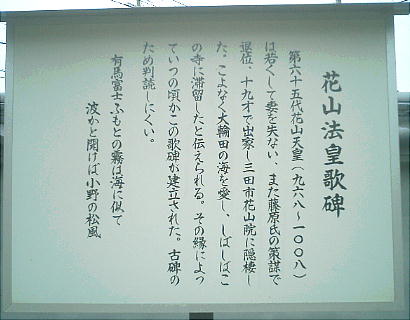 花山法皇歌碑
第六十五代花山天皇(九六八~一〇〇八)
は若くして妻を失ない、また藤原氏の策謀で
退位、十九才で出家し三田市花山院に隠棲し
た。こよなく大輪田の海を愛し、しばしばこ
の寺に滞留したと伝えられる。その縁によっ
ていつの頃かこの歌碑が建立された。古碑の
ため判読しにくい。
有馬富士ふもとの霧は海に似て
波かと聞けば小野の松風